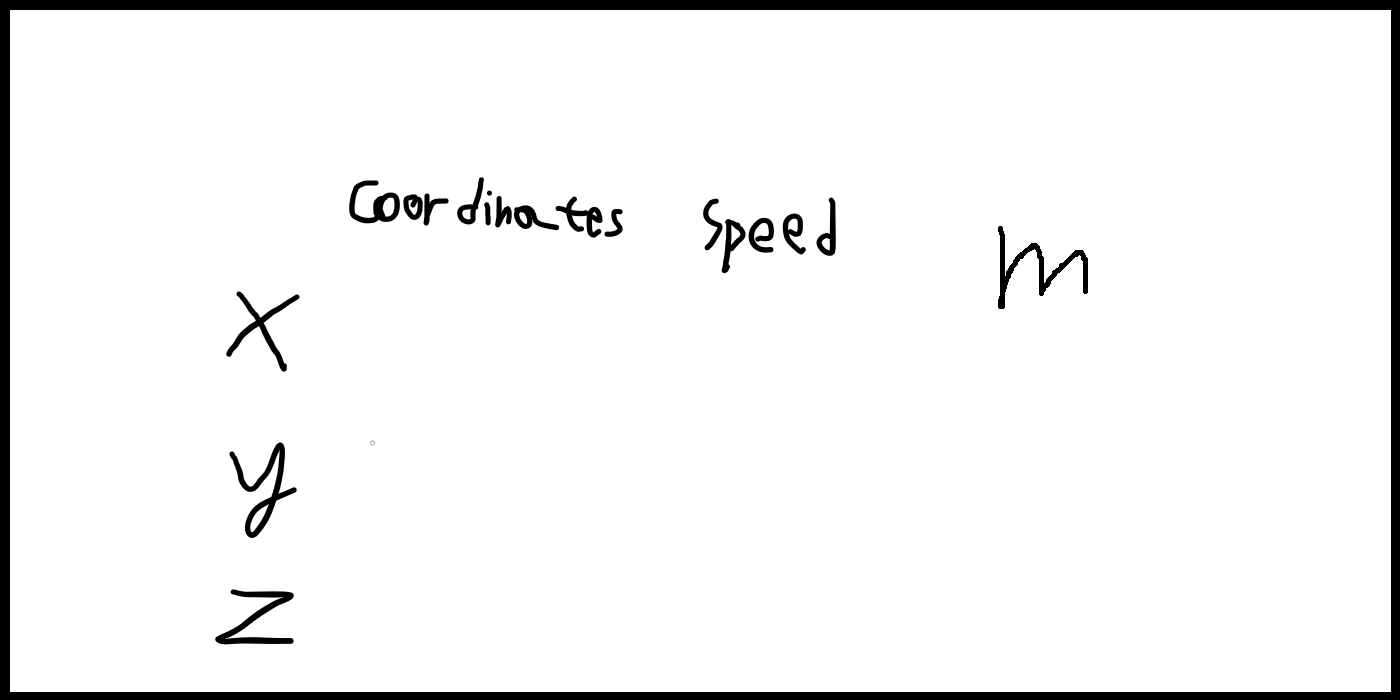 Coordinates Speed m
x
y
z